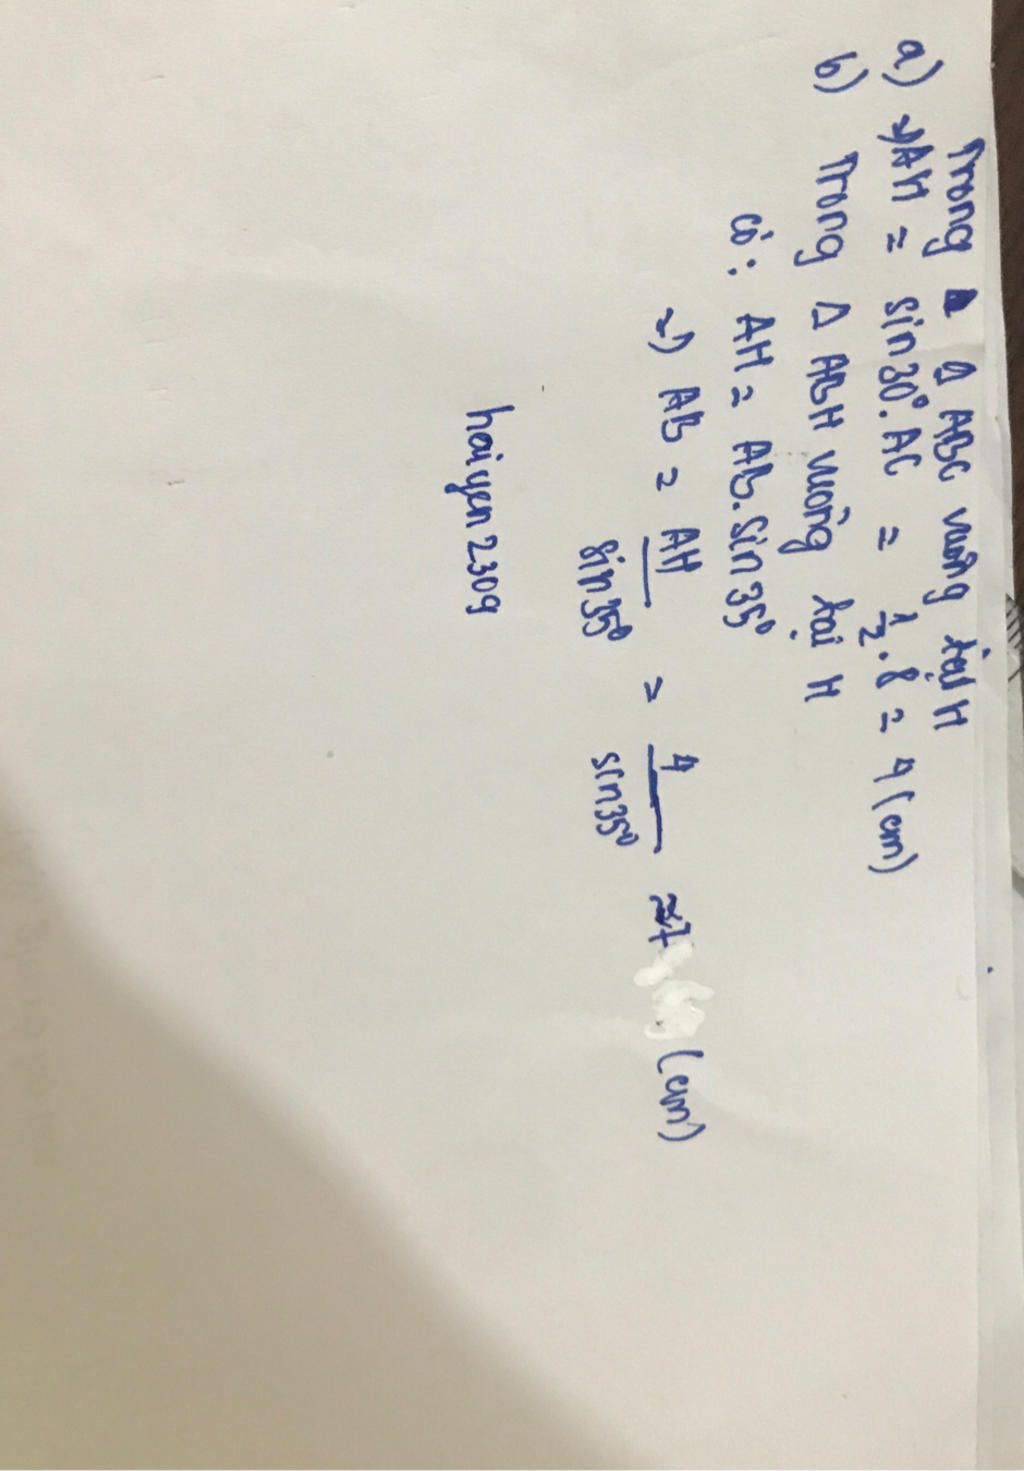 Trong Δ ABC vuông tại H
a) => AH = sin30°. AC = 1/2 . 8 = 4 (cm)
b) Trong Δ ABH vuông tại H
có: AH = AB. sin35°
=> AB = AH/sin35° = 4/sin35° ≈ 7 (cm)
haiyen2309